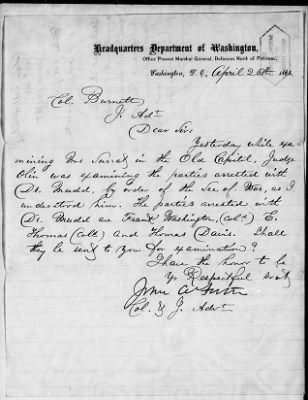 Headquarters Department of Washington,
Office Provost Marshal General, Defences North of Potomac,
Washington, D. C., April 26th 186
Col. Burnett
J. Advt
Dear Sir
Yesterday while exa-
mining Mrs Surratt in the Old Capitol, Judge
Olin was examining the parties arrested with
Dr. Mudd, by order of the Sec. of War, as I
understood him. The parties arrested with
Dr. Mudd are Frank Washington, (Cold) E.
Thomas (Cold) and Thomas Davis. Shall
they be sent to you for examination?
I have the honor to be
Yr Respectful
Col. & J. Advt